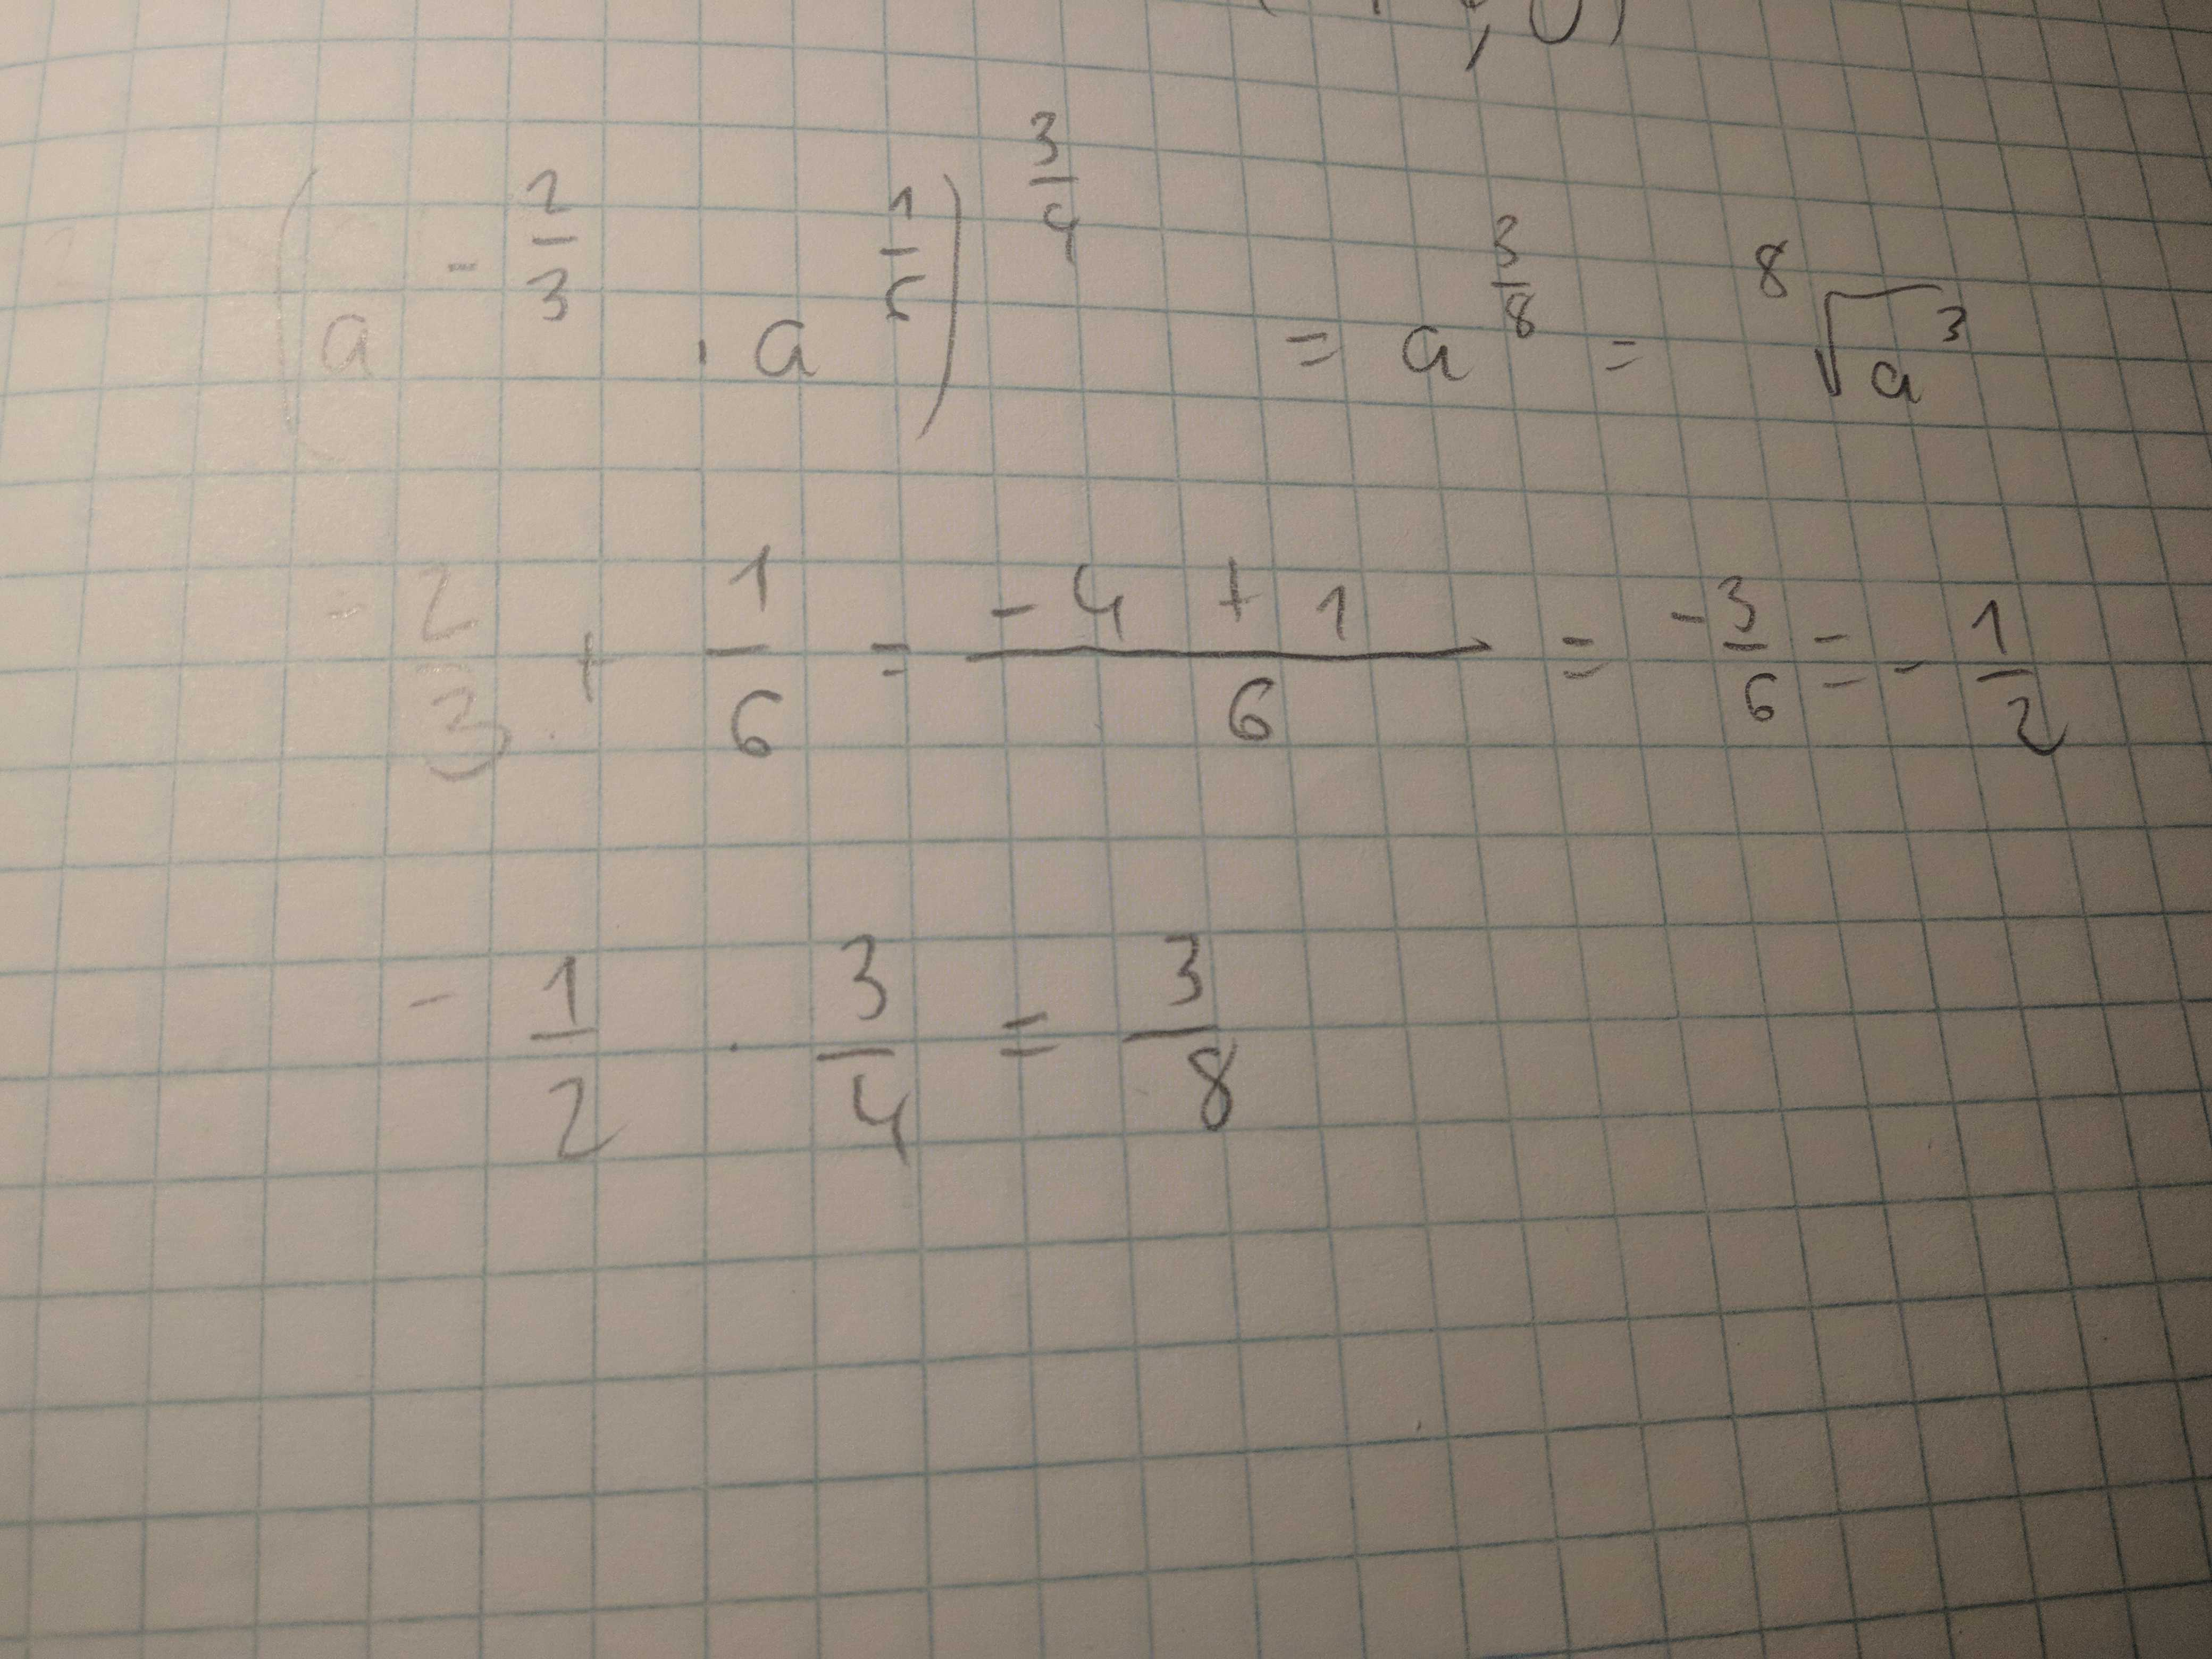 (a^{-\frac{2}{3}} \cdot a^{\frac{1}{5}})^{\frac{3}{4}} = a^{\frac{3}{8}} = \sqrt[8]{a^3}
-\frac{2}{3} + \frac{1}{6} = \frac{-4+1}{6} = \frac{-3}{6} = -\frac{1}{2}
-\frac{1}{2} \cdot \frac{3}{4} = \frac{3}{8}